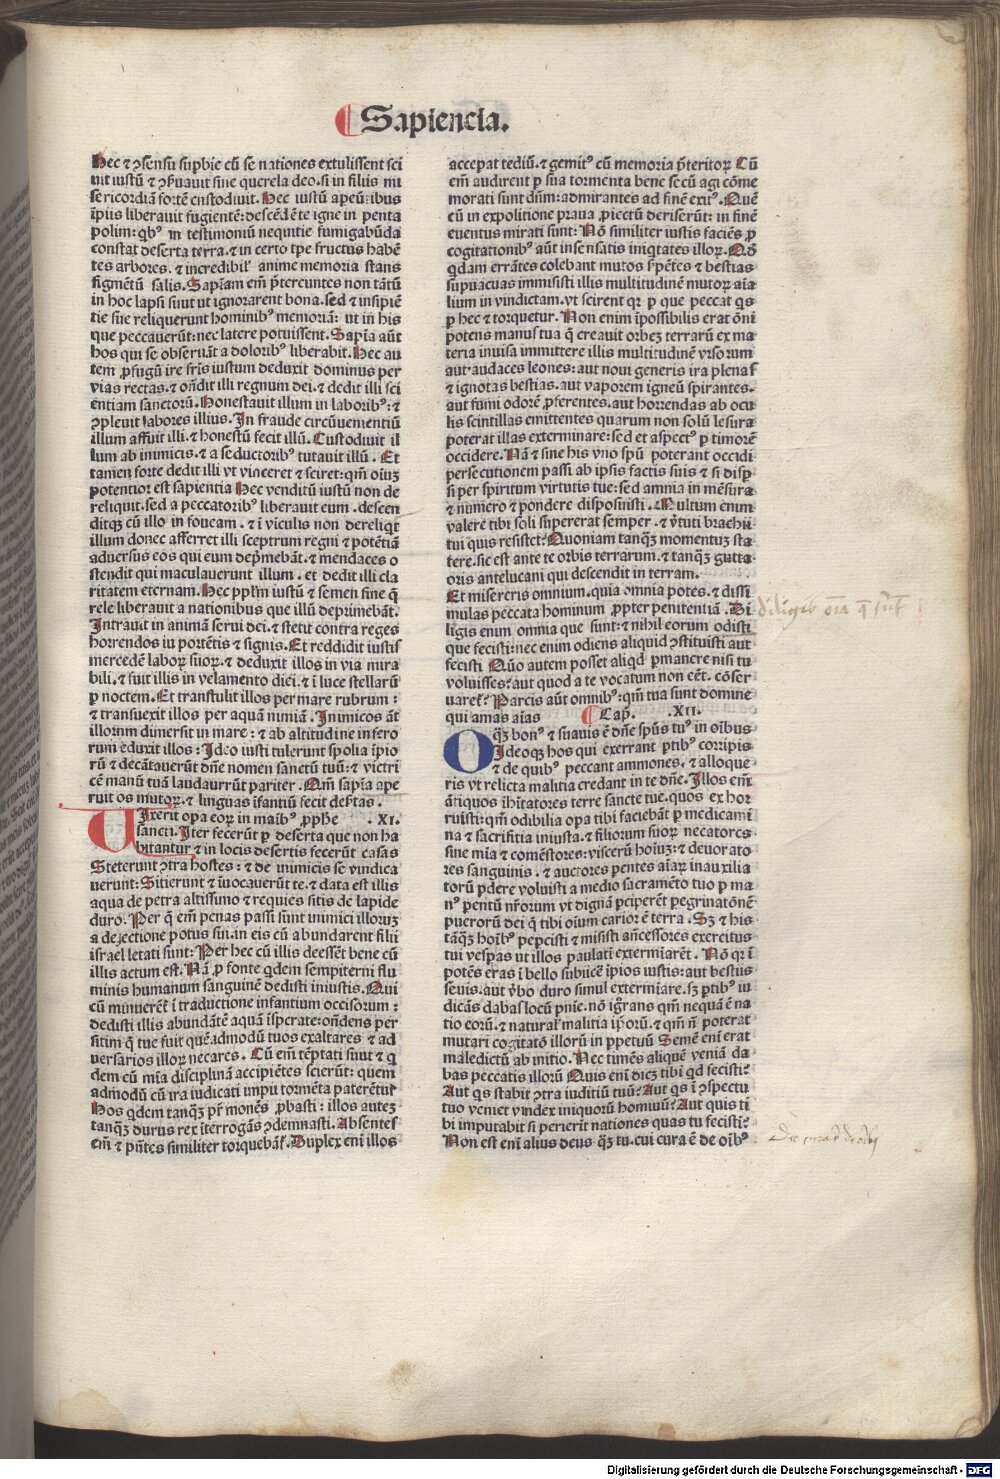 Sapiencia.
Hec ⁊ ꝯsensu supbie cū se nationes extulissent sci
uit iustū ⁊ ꝯẜuauit sine querela deo. si in filiis mi
sericordiā fortē custodiuit. Hec iustū apeūtibus
īpiis liberauit fugientē: descēdēte igne in penta
polim: qbꝰ in testimoniū nequitie fumigabūda
constat deserta terra. ⁊ in certo tpe fructus habē
tes arbores. ⁊ incredibil' anime memoria stans
figmētū salis. Sapīam em̄ p̄tereuntes non tātū
in hoc lapsi sunt ut ignorarent bona. sed ⁊ insipiē
tie sue reliquerunt hominibꝰ memoriā: ut in his
que peccauerūt: nec latere potuissent. Sapīa aūt
hos qui se obseruāt a doloribꝰ liberabit. Hec au
tem ꝓfugū ire fr̄is iustum deduxit dominus per
vias rectas. ⁊ oñdit illi regnum dei. ⁊ dedit illi sci
entiam sanctorū. Honestauit illum in laboribꝰ: ⁊
ꝯpleuit labores illius. In fraude circūuementiū
illum affuit illi. ⁊ honestū fecit illū. Custodiuit il
lum ab inimicis. ⁊ a seductoribꝰ tutauit illū. Et
tamen forte dedit illi vt vinceret ⁊ sciret: qm̄ oīuꝫ
potentior est sapientia Hec venditū iustū non de
reliquit. sed a peccatoribꝰ liberauit eum. descen
ditqꝫ cū illo in foueam. ⁊ ī viculis non dereliqt
illum donec afferret illi sceptrum regni ⁊ potētiā
aduersus eos qui eum dep̄mebāt. ⁊ mendaces o
stendit qui maculauerunt illum. et dedit illi cla
ritatem eternam. Hec pplm̄ iustū ⁊ semen sine q̄
rele liberauit a nationibus que illū deprimebāt.
Intrauit in animā serui dei. ⁊ stetit contra reges
horrendos iu portētis ⁊ signis. Et reddidit iustis
mercedē laboꝝ suoꝝ. ⁊ deduxit illos in via mira
bili. ⁊ fuit illis in velamento diei. ⁊ ī luce stellarū
p noctem. Et transtulit illos per mare rubrum:
⁊ transuexit illos per aquā nimiā. Inimicos āt
illorum dimersit in mare: ⁊ ab altitudine infero
rum eduxit illos: Ideo iusti tulerunt spolia īpio
rū ⁊ decātauerūt dn̄e nomen sanctū tuū: ⁊ victri
cē manū tuā laudaurrūt pariter. Qm̄ sapīa ape
ruit os mutoꝝ. ⁊ linguas īfantiū fecit deẜtas.
DIxerit opa eoꝝ in maibꝰ ꝓphe .XI.
sancti. Iter fecerūt p deserta que non ha
bitantur ⁊ in locis desertis fecerūt casas
Steterunt ꝯtra hostes: ⁊ de inimicis se vindica
uerunt: Sitierunt ⁊ īuocauerūt te. ⁊ data est illis
aqua de petra altissimo ⁊ requies sitis de lapide
duro. Per q̄ em̄ penas passi sunt inimici illoruꝫ
a deiectione potus sui. in eis cū abundarent filii
israel letati sunt: Per hec cū illis deessēt bene cū
illis actum est. Nā ꝓ fonte qdem sempiterni flu
minis humanum sanguinē dedisti iniustis. Qui
cū minuerēt ī traductione infantium occisorum:
dedisti illis abundātē aquā īsperate: oñdens per
sitim q̄ tue fuit quēadmodū tuos exaltares ⁊ ad
uersarios illoꝝ necares. Cū em̄ tēptati sunt ⁊ q
dem cū mīa disciplinā accipiētes scierūt: quem
admodū cū ira iudicati impii tormēta paterētur
Hos qdem tanqꝫ pr̄ monēs ꝓbasti: illos auteꝫ
tanqꝫ durus rex īterrogās ꝯdemnasti. Absentes
em̄ ⁊ p̄ntes similiter torquebāt. Duplex enī illos
acceperat tediū. ⁊ gemitꝰ cū memoria p̄teritoꝝ Cū
em̄ audirent p sua tormenta bene secū agi cōme
morati sunt dn̄m: admirantes ad finē exitꝰ. Quē
eū in expolitione praua ꝓiectū deriserūt: in finē
euentus mirati sunt: Nō similiter iustis faciēs ꝓ
cogitationibꝰ aūt insensatis iniqtates illoꝝ. Qō
qdam errātes colebant mutos ẜpētes ⁊ bestias
supuacuas immisisti illis multitudinē mutoꝝ aīa
lium in vindictam. vt scirent qꝛ p que peccat qs
p hec ⁊ torquetur. Non enim īpossibilis erat ōni
potens manus tua q̄ creauit orbeꝫ terrarū ex ma
teria inuisa immittere illis multitudinē vrsorum
aut audaces leones: aut noui generis ira plenas
⁊ ignotas bestias. aut vaporem igneū spirantes.
aut fumi odorē ꝓferentes. aut horrendas ab ocu
lis scintillas emittentes quarum non solū lesura
poterat illas exterminare: sed et aspectꝰ p timorē
occidere. Nā ⁊ sine his vno spū poterant occidi
persecutionem passi ab ipsis factis suis ⁊ si disp
si per spiritum virtutis tue: sed amnia in mēsura
⁊ numero ⁊ pondere disposuisti. Multum enim
valere tibi soli supererat semper. ⁊ v̄tuti brachii
tui quis resistet? Quoniam tanqꝫ momentuꝫ sta
tere. sic est ante te orbis terrarum. ⁊ tanqꝫ gutta
oris antelucani qui descendit in terram.
Et misereris omnium. quia omnia potes. ⁊ dissi
mulas peccata hominum ꝓpter penitentiā. Di
ligis enim omnia que sunt: ⁊ nihil eorum odisti
que fecisti: nec enim odiens aliquid ꝯstituisti aut
fecisti Quō autem posset aliqd pmanere nisi tu
voluisses? aut quod a te vocatum non eēt. cōser
uaret? Parcis aūt omnibꝰ: qm̄ tua sunt domine
qui amas aīas Cap̄. .XII.
OQꝫ bonꝰ ⁊ suauis ē dn̄e spūs tuꝰ in oībus
Ideoqꝫ hos qui exerrant ptibꝰ corripis
⁊ de quibꝰ peccant ammones. ⁊ alloque
ris vt relicta malitia credant in te dn̄e. Illos em̄
ātiquos īhītatores terre sancte tue. quos exhor
ruisti: qm̄ odibilia opa tibi faciebāt p medicami
na ⁊ sacrifitia iniusta. ⁊ filiorum suoꝝ necatores
sine mīa ⁊ comēstores: visceruꝫ hoīuꝫ: ⁊ deuorato
res sanguinis. ⁊ auctores pentes aīaꝝ inauxilia
torū pdere voluisti a medio sacramēto tuo p ma
nꝰ pentū nr̄orum vt dignā pciperēt pegrinatōnē
pueroruū dei q̄ tibi oīum carior ē terra. Sꝫ ⁊ his
tāqꝫ hoībꝰ pepcisti ⁊ misisti añcessores exercitus
tui vespas ut illos paulatī extermiarēt. Nō qꝛ ī
potēs eras ī bello subiicē īpios iustis: aut bestiis
seuis. aut v̄bo duro simul extermiare. sꝫ ptibꝰ iu
dicās dabas locū pn̄ie. nō ig̃rans qm̄ nequā ē na
tio eorū. ⁊ naturał malitia ip̄orū. ⁊ qm̄ ñ poterat
mutari cogitatō illorū in ppetuū Semē enī erat
maledictū ab initio. Nec timēs aliquē veniā da
bas peccatis illorū Quis enī diceꝫ tibi qd fecisti?
Aut qs stabit ꝯtra iuditiū tuū? Aut qs ī ꝯspectu
tuo veniet vindex iniquorū homiuū? Aut quis ti
bi imputabit si perierit nationes quas tu fecisti?
Non est enī alius deus qꝫ tu. cui cura ē de oībꝰ
diligis oīa q̄ sūt
Deo cura ē de oībꝰ
Digitalisierung gefördert durch die Deutsche Forschungsgemeinschaft - DFG